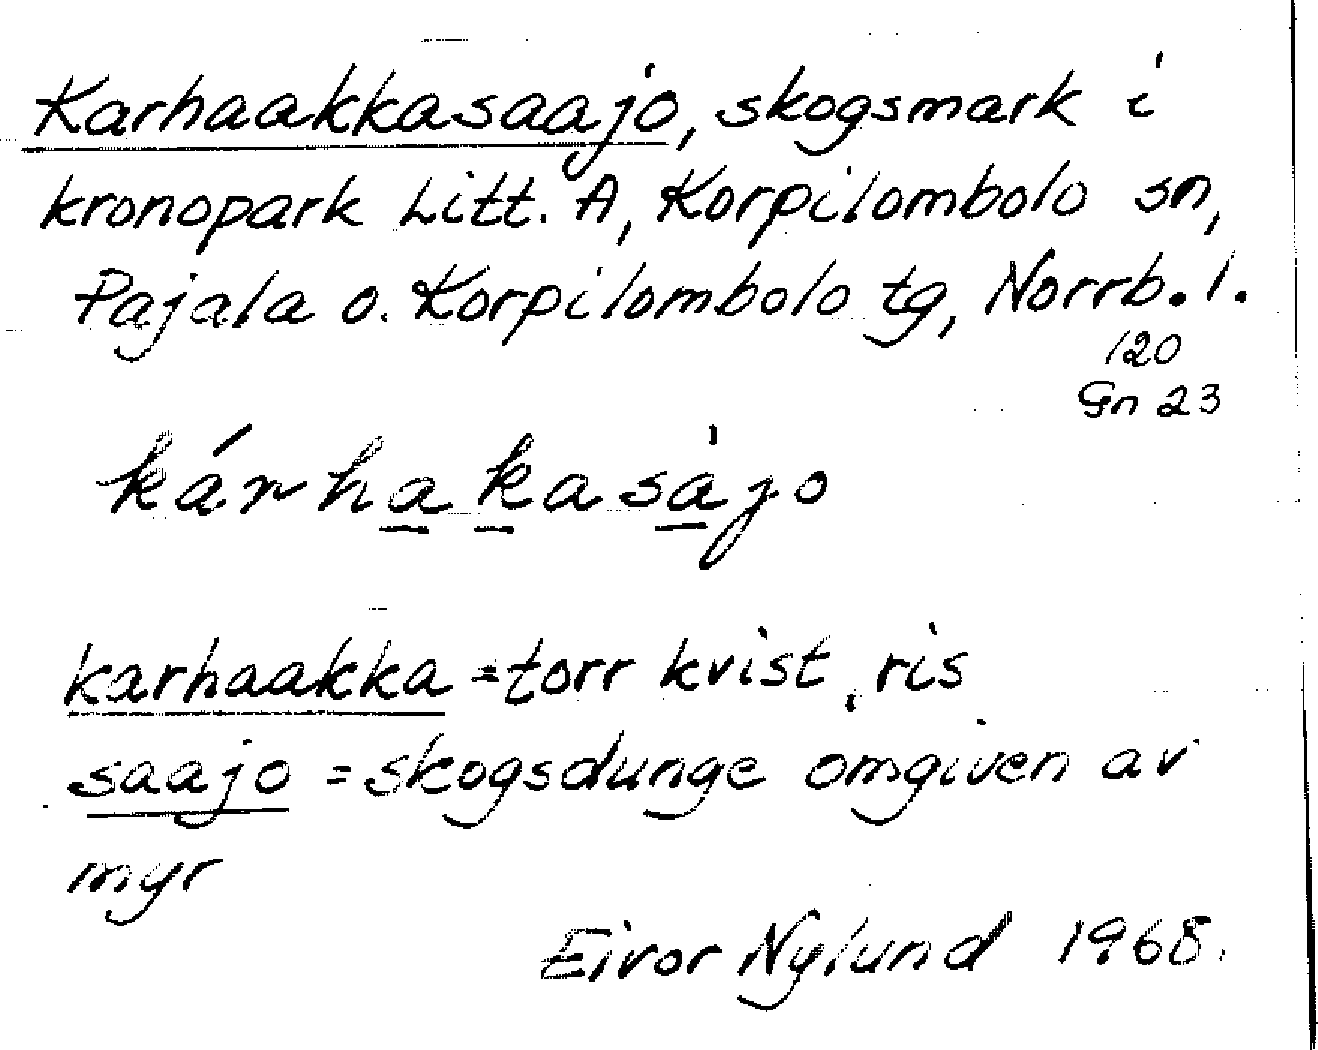 Karhaakkasaajo, skogsmark i
kronopark Litt. A, Korpilombolo sn,
Pajala o. Korpilombolo tg, Norrb. l.
120
Gn 23
kárhakasajo
karhaakka = torr kvist, ris
saajo = skogsdunge omgiven av
myr
Eivor Nylund 1968.